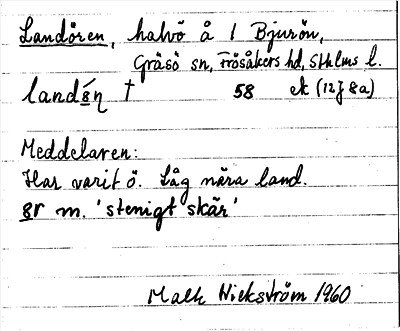 Landören, halvö å 1 Bjurön,
Gräsö sn, Frösåkers hd, Sthlms l.
58 ek (12J 8a)
Meddelaren:
Har varit ö. Låg nära land.
8r m. 'stenigt skär'
Malk Wiekström 1960